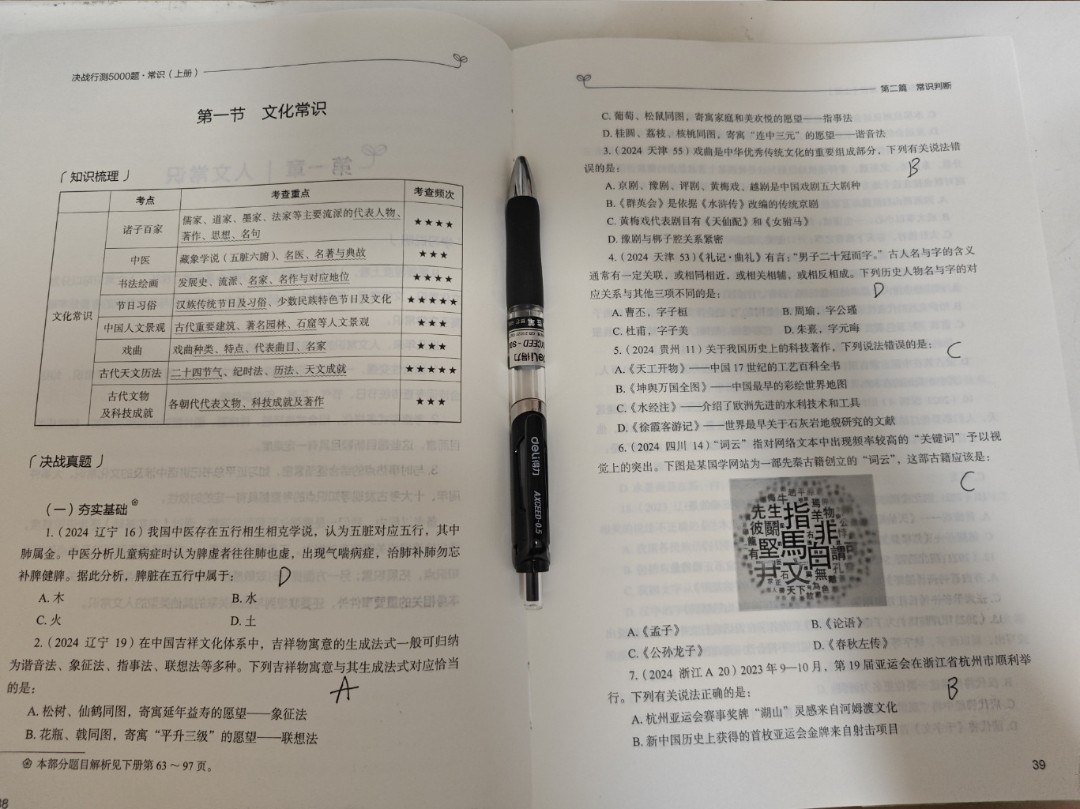 决战行测5000题·常识（上册）
第一节 文化常识
「知识梳理」
考点 考查重点 考查频次
文化常识
诸子百家 儒家、道家、墨家、法家等主要流派的代表人物、著作、思想、名句 ★★★★
中医 藏象学说（五脏六腑）、名医、名著与典故 ★★★
书法绘画 发展史、流派、名家、名作与对应地位 ★★★★
节日习俗 汉族传统节日及习俗、少数民族特色节日及文化 ★★★★★
中国人文景观 古代重要建筑、著名园林、石窟等人文景观 ★★★
戏曲 戏曲种类、特点、代表曲目、名家 ★★★
古代天文历法 二十四节气、纪时法、历法、天文成就 ★★★★★
古代文物及科技成就 各朝代代表文物、科技成就及著作 ★★★
「决战真题」
（一）夯实基础
1.（2024 辽宁 16）我国中医存在五行相生相克学说，认为五脏对应五行，其中
肺属金。中医分析儿童病症时认为脾虚者往往肺也虚，出现气喘病症，治肺补肺勿忘
补脾健脾。据此分析，脾脏在五行中属于： D
A. 木 B. 水
C. 火 D. 土
2.（2024 辽宁 19）在中国吉祥文化体系中，吉祥物寓意的生成法式一般可归纳
为谐音法、象征法、指事法、联想法等多种。下列吉祥物寓意与其生成法式对应恰当
的是： A
A. 松树、仙鹤同图，寄寓延年益寿的愿望——象征法
B. 花瓶、戟同图，寄寓“平升三级”的愿望——联想法
本部分题目解析见下册第 63～97 页。
第二篇 常识判断
C. 葡萄、松鼠同图，寄寓家庭和美欢悦的愿望——指事法
D. 桂圆、荔枝、核桃同图，寄寓“连中三元”的愿望——谐音法
3.（2024 天津 55）戏曲是中华优秀传统文化的重要组成部分，下列有关说法错
误的是： B
A. 京剧、豫剧、评剧、黄梅戏、越剧是中国戏剧五大剧种
B.《群英会》是依据《水浒传》改编的传统京剧
C. 黄梅戏代表剧目有《天仙配》和《女驸马》
D. 豫剧与梆子腔关系紧密
4.（2024 天津 53）《礼记·曲礼》有言：“男子二十冠而字。”古人名与字的含义
通常有一定关联，或相同相近，或相关相辅，或相反相成。下列历史人物名与字的对
应关系与其他三项不同的是： D
A. 曹丕，字子桓 B. 周瑜，字公瑾
C. 杜甫，字子美 D. 朱熹，字元晦
5.（2024 贵州 11）关于我国历史上的科技著作，下列说法错误的是： C
A.《天工开物》——中国 17 世纪的工艺百科全书
B.《坤舆万国全图》——中国最早的彩绘世界地图
C.《水经注》——介绍了欧洲先进的水利技术和工具
D.《徐霞客游记》——世界最早关于石灰岩地貌研究的文献
6.（2024 四川 14）“词云”指对网络文本中出现频率较高的“关键词”予以视
觉上的突出。下图是某国学网站为一部先秦古籍创立的“词云”，这部古籍应该是：
C
指馬 非白 堅 文
A.《孟子》 B.《论语》
C.《公孙龙子》 D.《春秋左传》
7.（2024 浙江 A 20）2023 年 9—10 月，第 19 届亚运会在浙江省杭州市顺利举
行。下列有关说法正确的是： B
A. 杭州亚运会赛事奖牌“湖山”灵感来自河姆渡文化
B. 新中国历史上获得的首枚亚运会金牌来自射击项目
39
deli得力
AXCEED-0.5